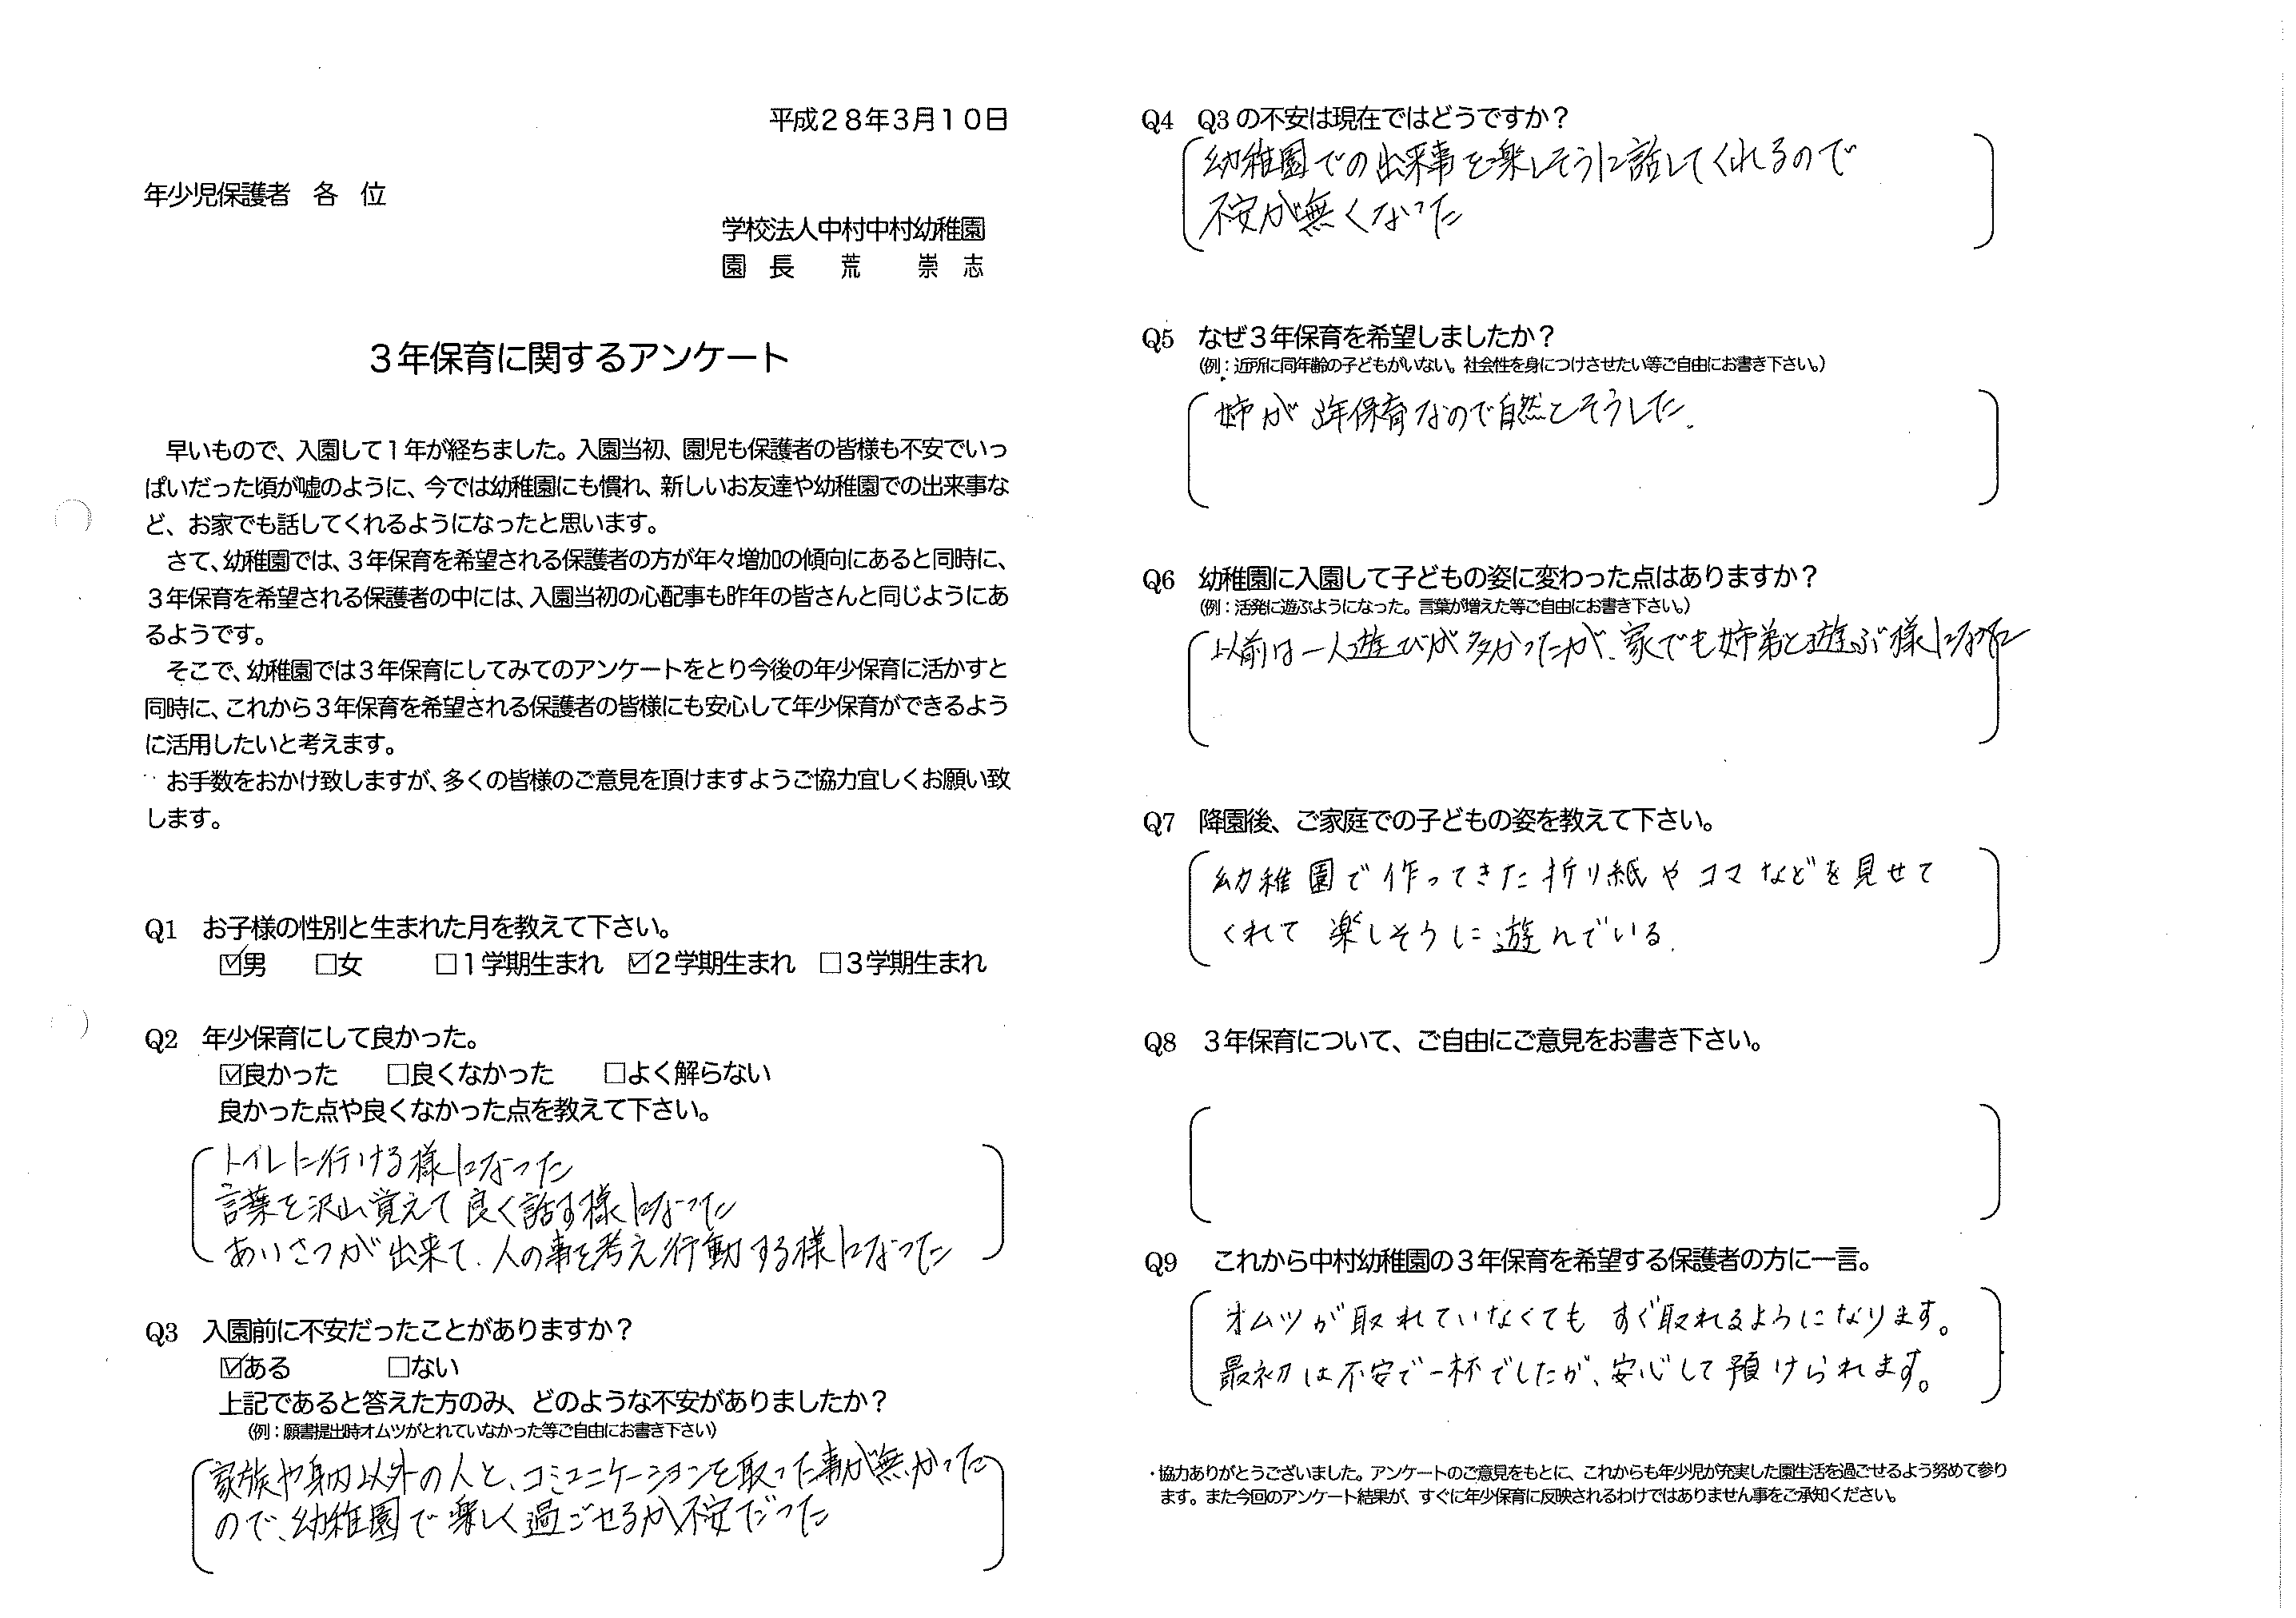 平成２８年３月１０日
年少児保護者　各　位
学校法人中村中村幼稚園
園　長　　荒　　崇　志
３年保育に関するアンケート
早いもので、入園して１年が経ちました。入園当初、園児も保護者の皆様も不安でいっ
ぱいだった頃が嘘のように、今では幼稚園にも慣れ、新しいお友達や幼稚園での出来事な
ど、お家でも話してくれるようになったと思います。
さて、幼稚園では、３年保育を希望される保護者の方が年々増加の傾向にあると同時に、
３年保育を希望される保護者の中には、入園当初の心配事も昨年の皆さんと同じようにあ
るようです。
そこで、幼稚園では３年保育にしてみてのアンケートをとり今後の年少保育に活かすと
同時に、これから３年保育を希望される保護者の皆様にも安心して年少保育ができるよう
に活用したいと考えます。
お手数をおかけ致しますが、多くの皆様のご意見を頂けますようご協力宜しくお願い致
します。
Q1　お子様の性別と生まれた月を教えて下さい。
☑男　□女　□１学期生まれ　☑２学期生まれ　□３学期生まれ
Q2　年少保育にして良かった。
☑良かった　□良くなかった　□よく解らない
良かった点や良くなかった点を教えて下さい。
トイレに行ける様になった
言葉を沢山覚えて良く話す様になった
あいさつが出来て、人の事を考え行動する様になった
Q3　入園前に不安だったことがありますか？
☑ある　□ない
上記であると答えた方のみ、どのような不安がありましたか？
（例：願書提出時オムツがとれていなかった等ご自由にお書き下さい）
家族や身内以外の人と、コミュニケーションを取った事が無かった
ので、幼稚園で楽しく過ごせるか不安だった
Q4　Q3の不安は現在ではどうですか？
幼稚園での出来事を楽しそうに話してくれるので
不安が無くなった
Q5　なぜ３年保育を希望しましたか？
（例：近所に同年齢の子どもがいない。社会性を身につけさせたい等ご自由にお書き下さい。）
姉が3年保育なので自然とそうした．
Q6　幼稚園に入園して子どもの姿に変わった点はありますか？
（例：活発に遊ぶようになった。言葉が増えた等ご自由にお書き下さい。）
以前は一人遊びが多かったが、家でも姉弟と遊ぶ様になった
Q7　降園後、ご家庭での子どもの姿を教えて下さい。
幼稚園で作ってきた折り紙やコマなどを見せて
くれて楽しそうに遊んでいる．
Q8　３年保育について、ご自由にご意見をお書き下さい。
Q9　これから中村幼稚園の３年保育を希望する保護者の方に一言。
オムツが取れていなくてもすぐ取れるようになります。
最初は不安で一杯でしたが、安心して預けられます。
・協力ありがとうございました。アンケートのご意見をもとに、これからも年少児が充実した園生活を過ごせるよう努めて参り
ます。また今回のアンケート結果が、すぐに年少保育に反映されるわけではありません事をご承知ください。